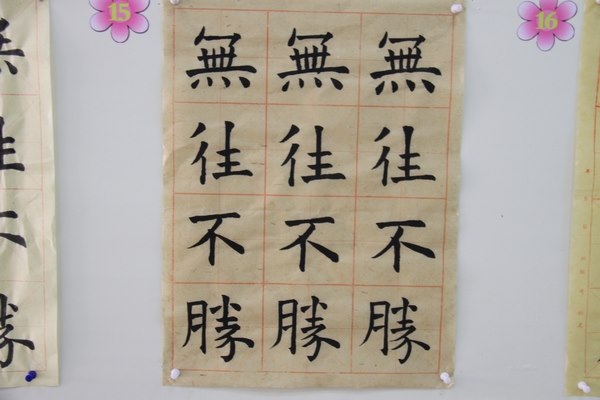 15
16
無往不勝
無往不勝
無往不勝